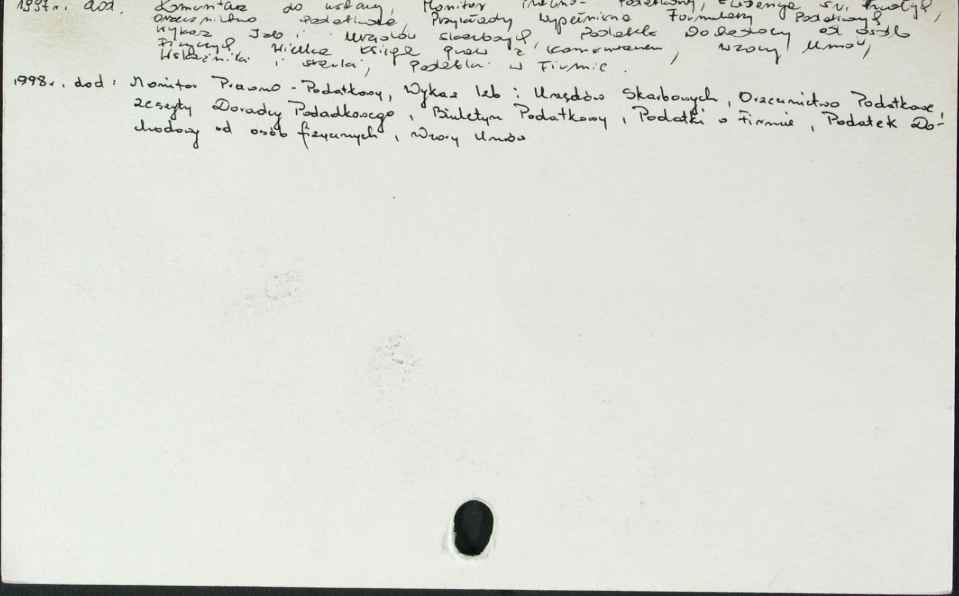 1997r. dod. Komentarz do ustawy, Monitor Prawno-Podatkowy,
orzecznictwo Podatkowe Przykłady Wypełniania Formularzy Podatkowych
Wykaz Izb i Urzędów Skarbowych, Podatek Dochodowy od osób
Fizycznych, Wielka Księga praw z komentarzem, Wzory Umów,
Wskaźniki i stawki, Podatki w Firmie.
1998r. dod: Monitor Prawno-Podatkowy, Wykaz Izb i Urzędów Skarbowych, Orzecznictwo Podatkowe,
Zeszyty Doradcy Podatkowego, Biuletyn Podatkowy, Podatki w Firmie, Podatek Do-
chodowy od osób fizycznych, Wzory Umów